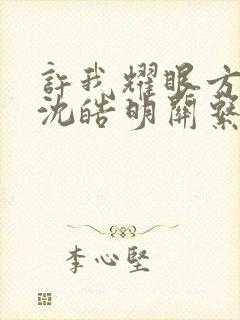 許我耀眼方
沈皓明關繫
李心堅